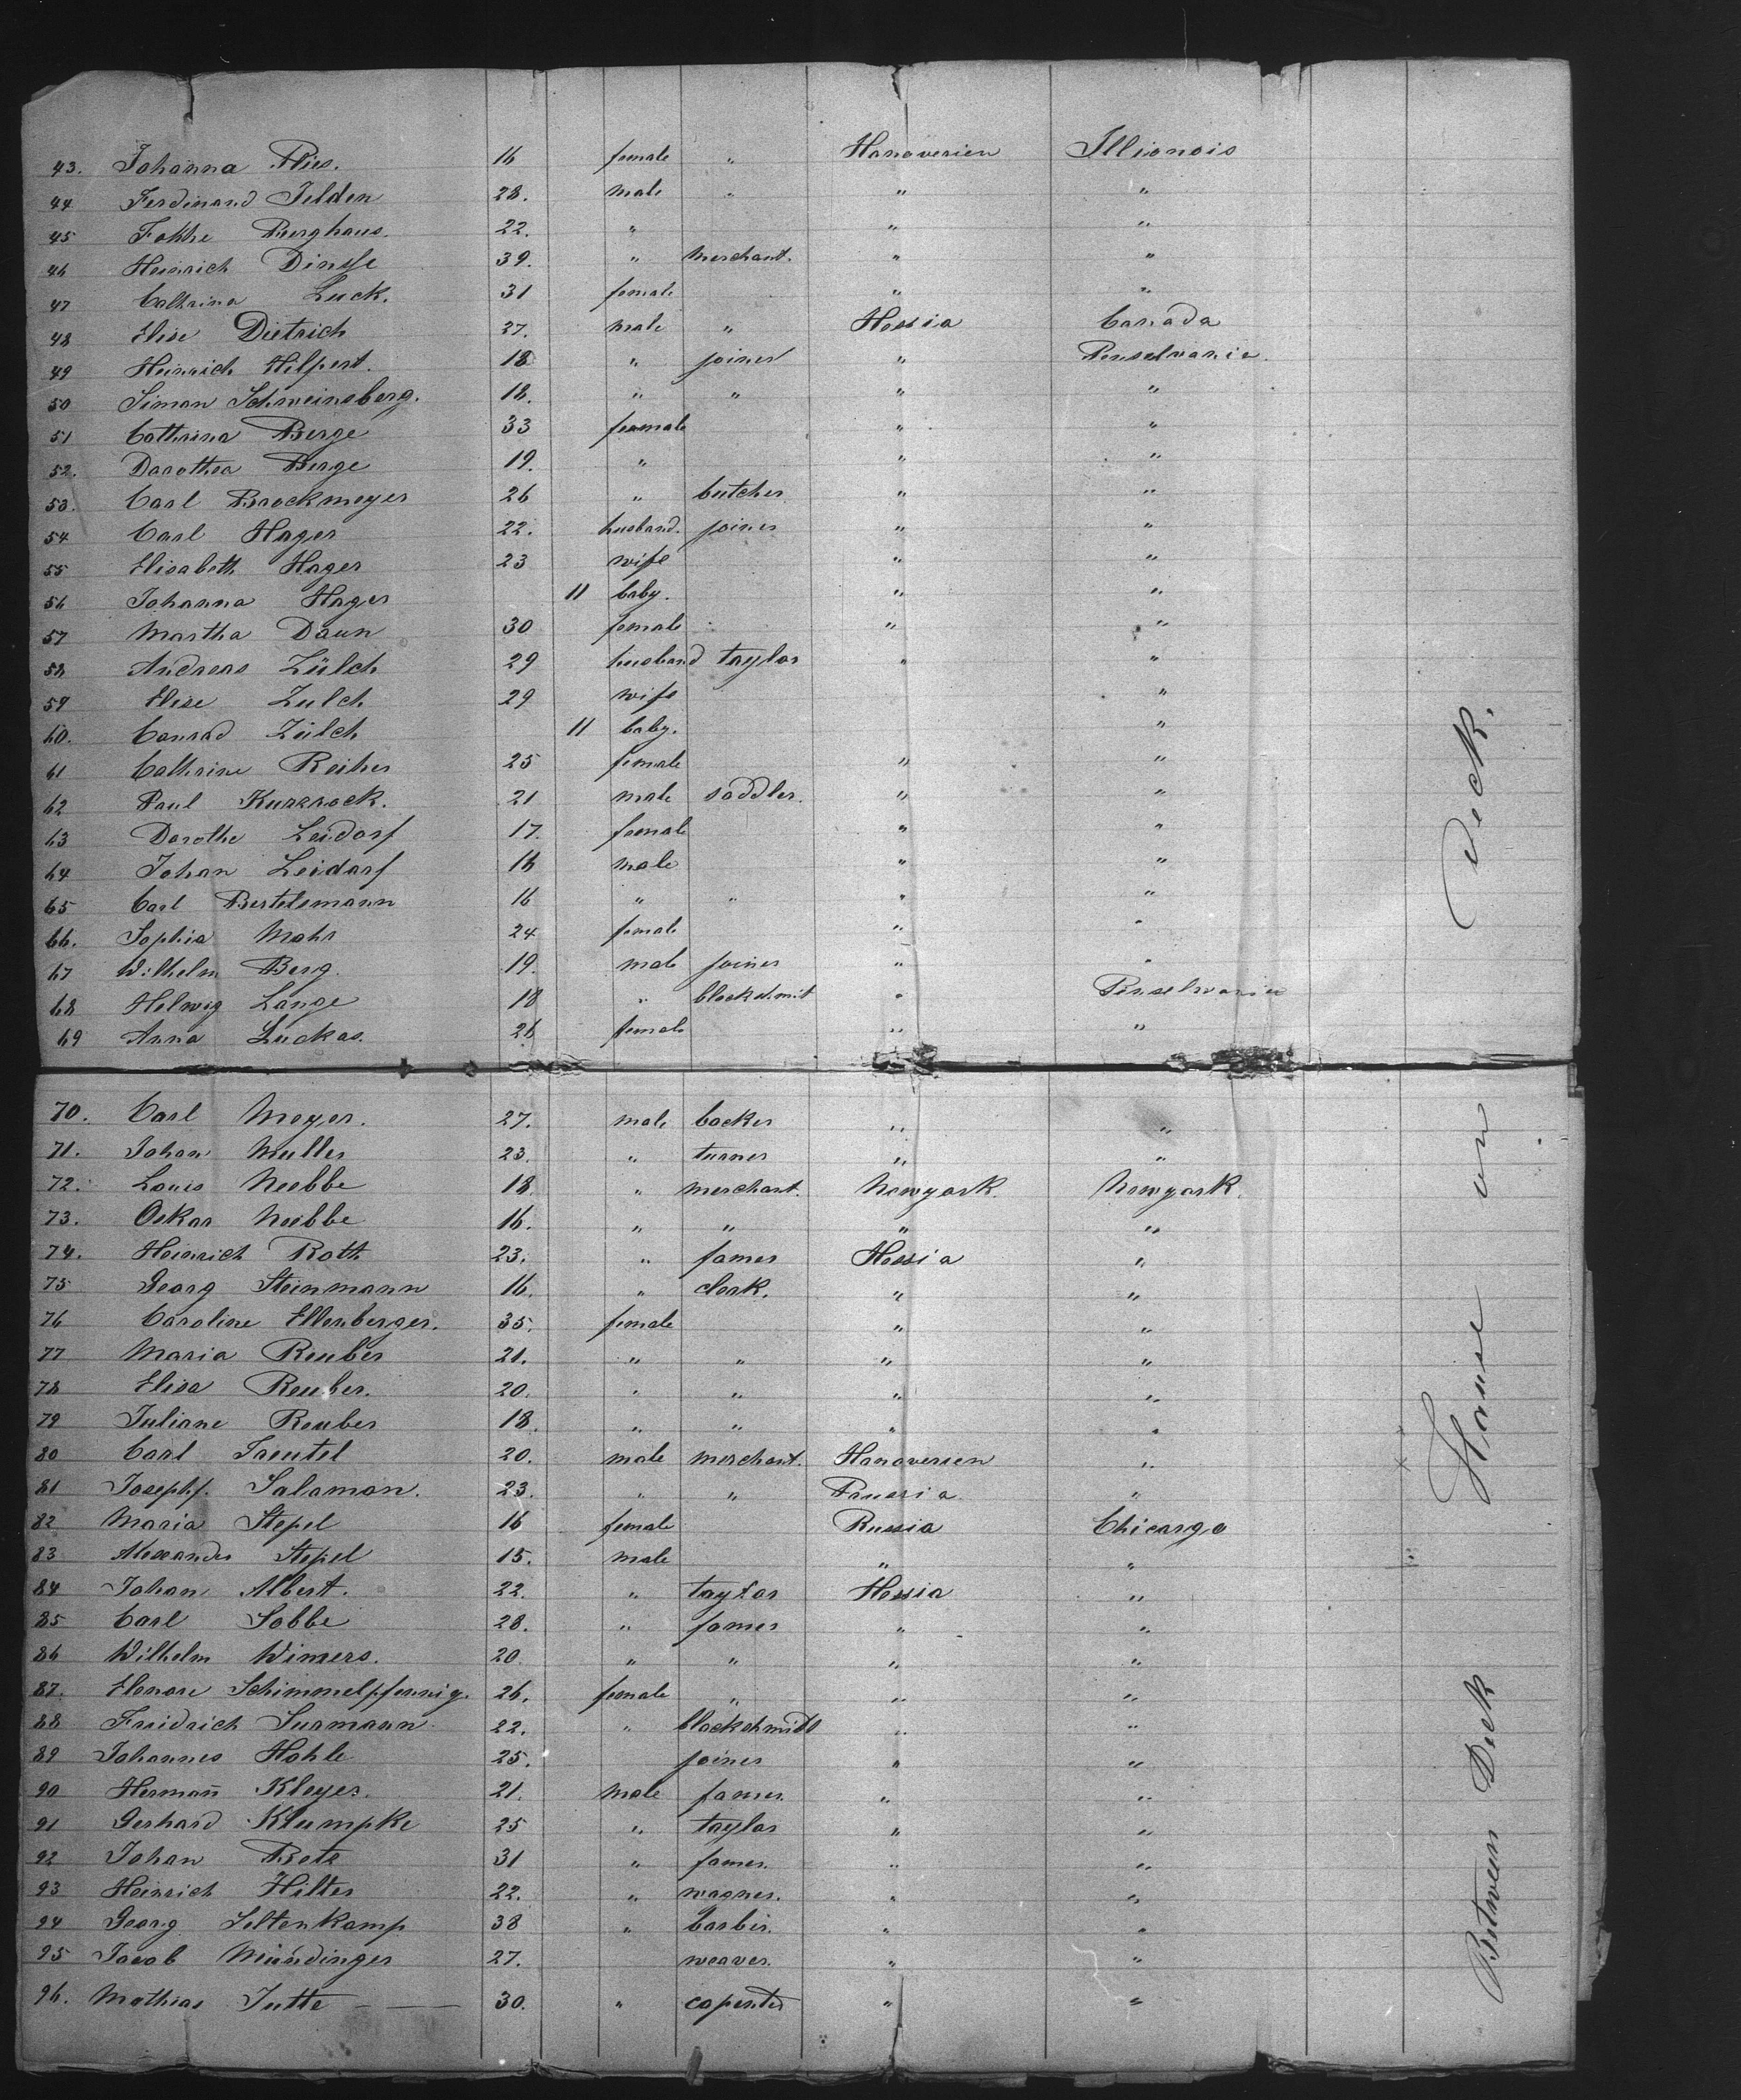 43. Johanna Plies. 16 female " Hanoverien Illionois
44 Ferdinand Jelden 28. male " " "
45 Fokke Berghaus. 22. " " "
46 Heinrich Dinsse 39. " merchant. " "
47 Cathrina Luck. 31 female " "
48 Elise Dietrich 27. male " Hessia Canada
49 Heinrich Hilpert. 18 " joiner " Penselvania.
50 Simon Schweinsberg. 18. " " " "
51 Cathrina Berge 33 feamale " "
52. Darothea Berge 19. " " "
53. Carl Brockmeyer 26 " butcher " "
54 Carl Hager 22. husband. joiner " "
55 Elisabeth Hager 23 wife " "
56 Johanna Hager 11 baby. " "
57 Martha Daun 30 female " "
58 Andreas Zülch 29 husband taylor " "
59 Elise Zulch 29 wife "
60. Conrad Zülch 11 baby. "
61 Cathrine Reiher 25 female " "
62 Paul Kurzrock. 21 male saddler. " "
63 Dorothe Leidorf 17. female " "
64 Johan Leidorf 16 male " "
65 Carl Bertelsmann 16 " " " "
66. Sophia Mohr 24 female " "
67 Wilhelm Berg. 19. male joiner " "
68 Helwig Lange 18 " blackdmit " Penselvania
69 Anna Luckas. 26 female " "
70. Carl Meyer. 27. male backer " "
71. Johan Muller 23. " turner " "
72. Louis Neebbe 18. " merchant. Newyork. Newyork.
73. Oskar Neebbe 16. " " " "
74. Heinrich Roth 23. " famer Hessia "
75 Georg Steinmann 16. " clerk. " "
76 Caroline Ellenberger. 35. female " "
77 Maria Reuber 21. " " " "
78 Elisa Reuber. 20. " " " "
79 Juliane Reuber 18. " " " "
80 Carl Treutel 20. male merchant. Hanoverien "
81 Joseph. Salamon. 23. " " Prussia. "
82 Maria Stepel 16 female Russia Chicargo
83 Alexander Stepel 15. male " "
84 Johan Albert. 22. " taylor Hessia "
85 Carl Sobbe 28. " famer " "
86 Wilhelm Wimers. 20. " " " "
87. Elenore Schimmelpfennig. 26. female " " "
88 Freidrich Surmann 22. " blackdmidt " "
89 Johannes Hohle 25. joiner " "
90 Hermañ Kleyer. 21. male famer. " "
91 Gerhard Klumpke 25 " taylor " "
92 Johan Betz 31 " famer. " "
93 Heinrich Hilter 22. " wagner. " "
94 Georg Seltenkamp 38 " barbier. " "
95 Jacob Mündinger 27. weaver. " "
96. Mathias Jutte 30. " capenter " "
Between Deck House un Deck.